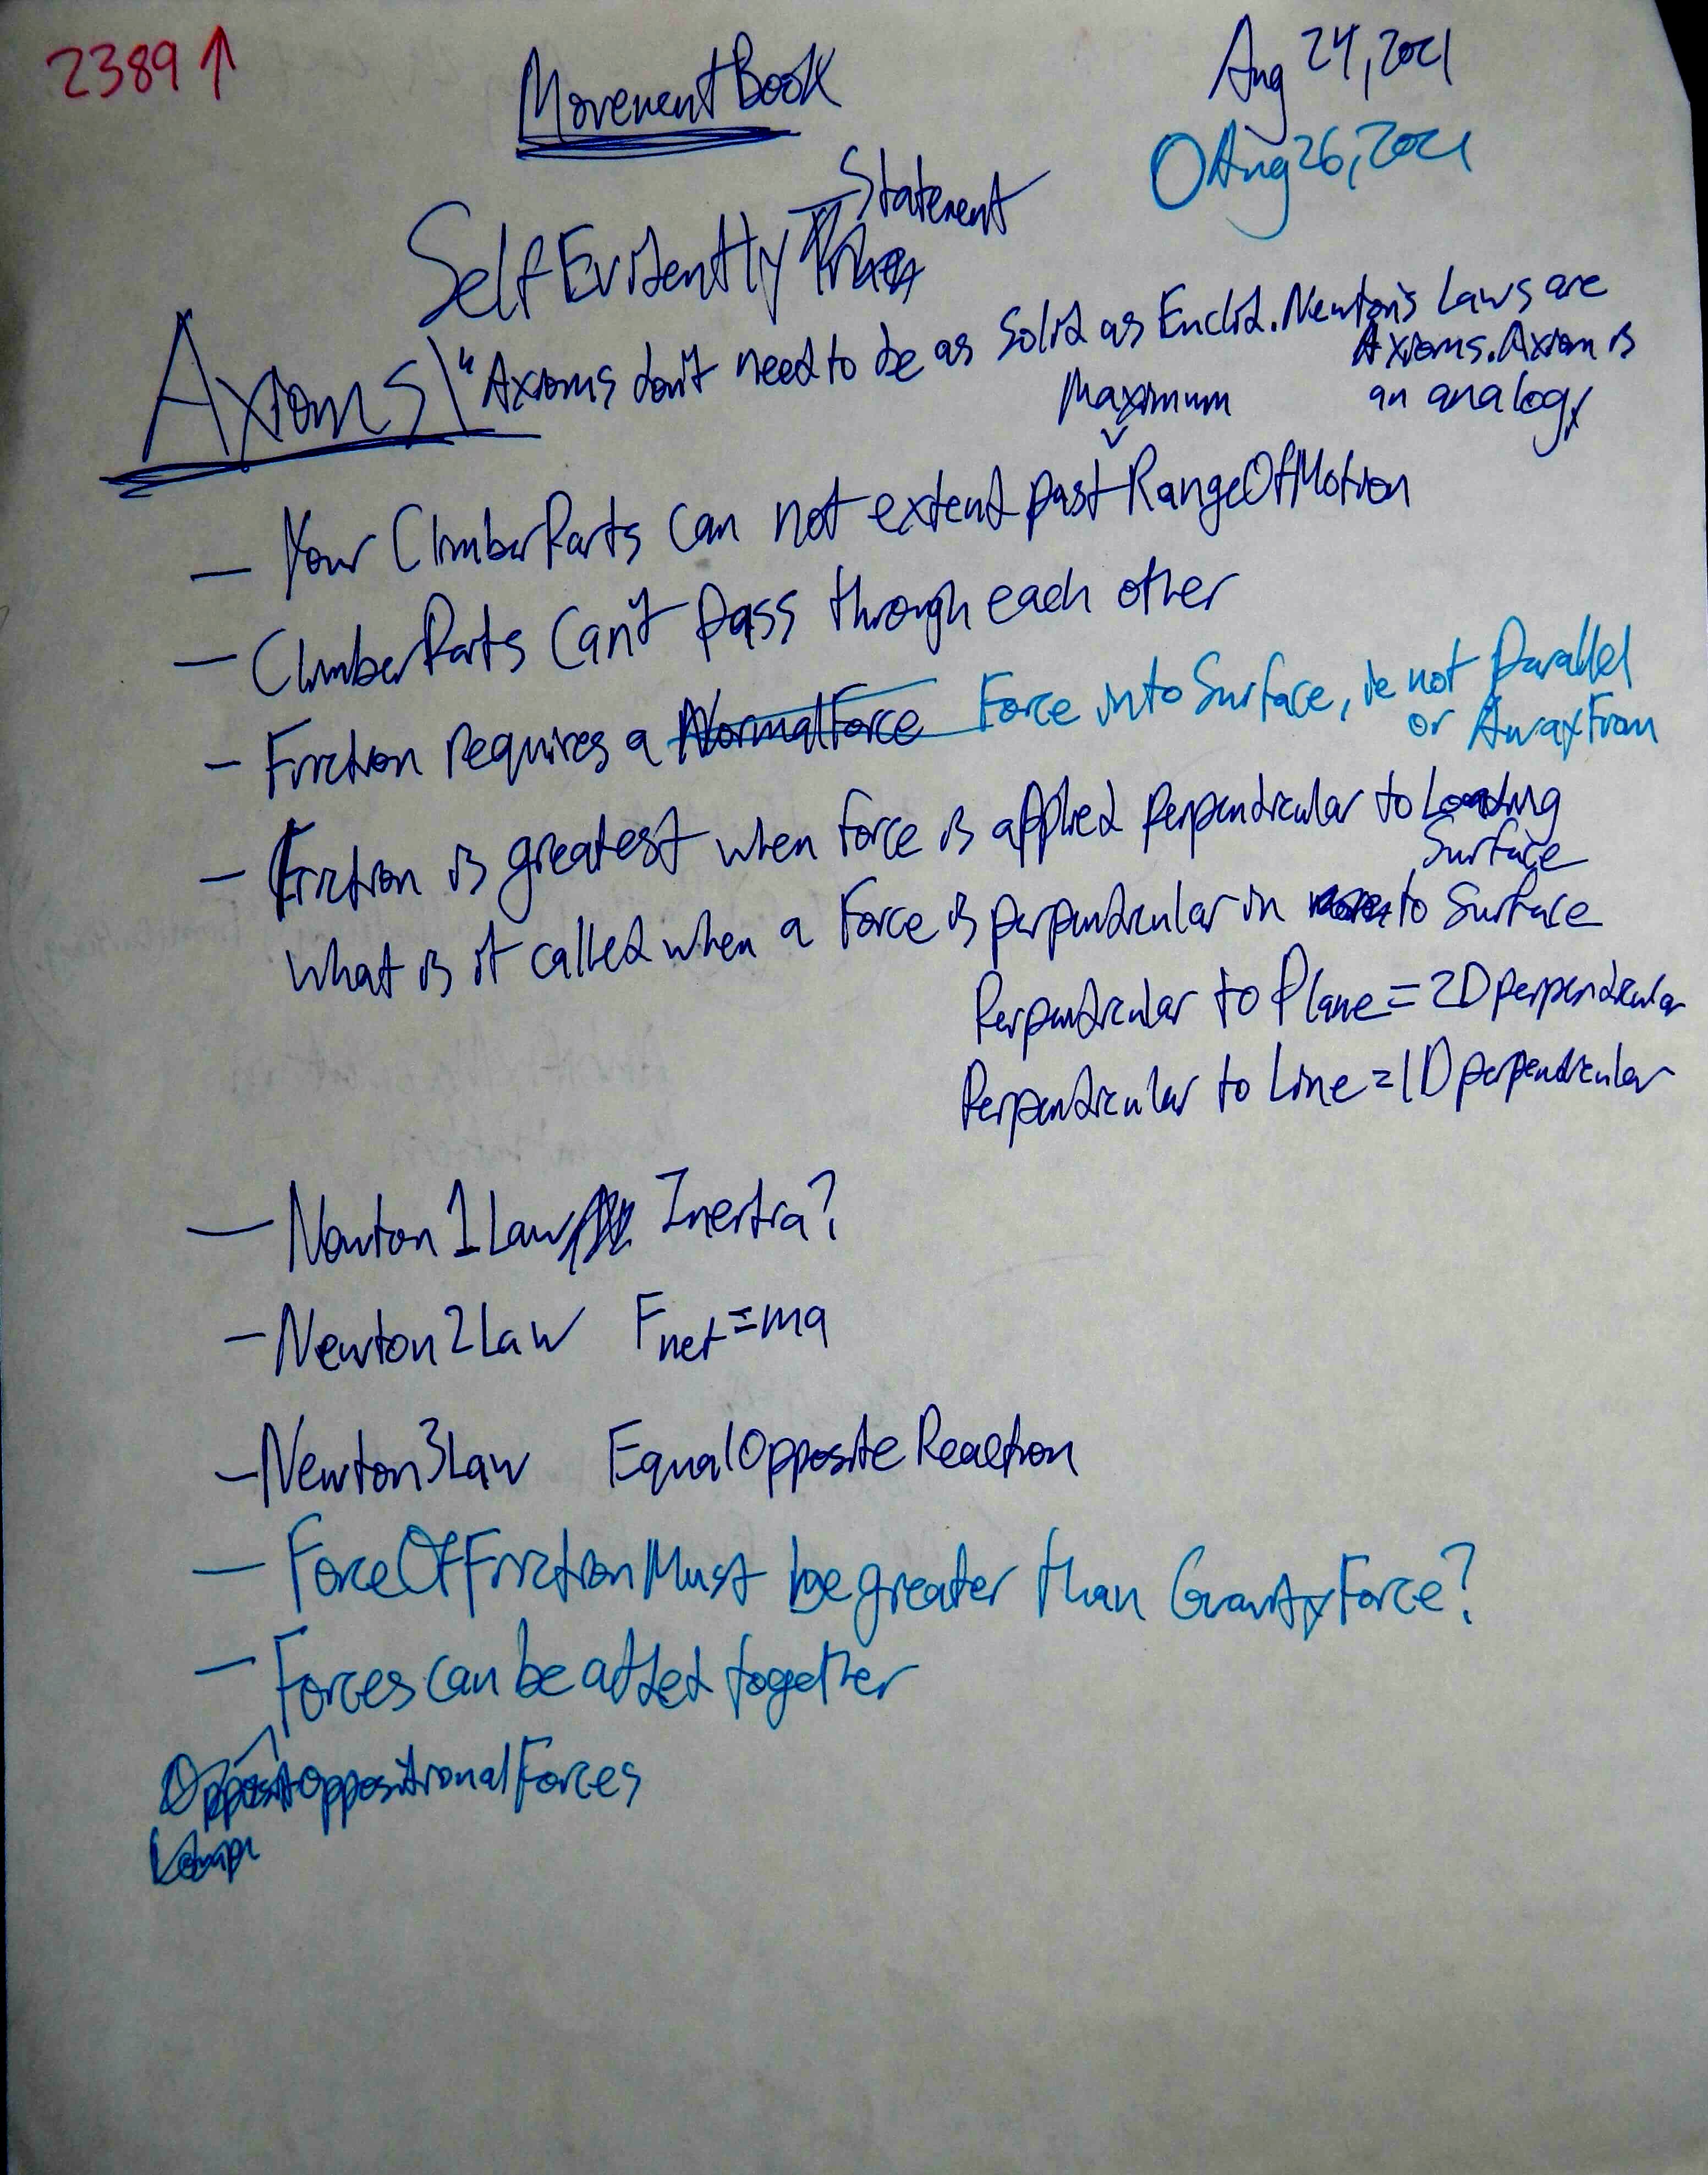 2389↑
MovementBook
Aug 24, 2021
Aug 26, 2021
Statement
SelfEvidently
Axioms
"Axioms don't need to be as Solid as Euclid. Newton's Laws are
Axioms. Axiom is
an analogy
Maximum
— Your ClimberParts can not extend past RangeOfMotion
— ClimberParts Can't Pass through each other
— Friction requires a NormalForce Force into Surface, ie not Parallel
or AwayFrom
— Friction is greatest when force is applied perpendicular to Loading
Surface
What is it called when a Force is perpendicular in to Surface
Perpendicular to Plane = 2D perpendicular
Perpendicular to Line = 1D perpendicular
— Newton1Law Inertia?
— Newton2Law Fnet = ma
— Newton3Law EqualOppositeReaction
— ForceOfFrictionMust be greater than GravityForce?
— Forces can be added together
OppositionalForces